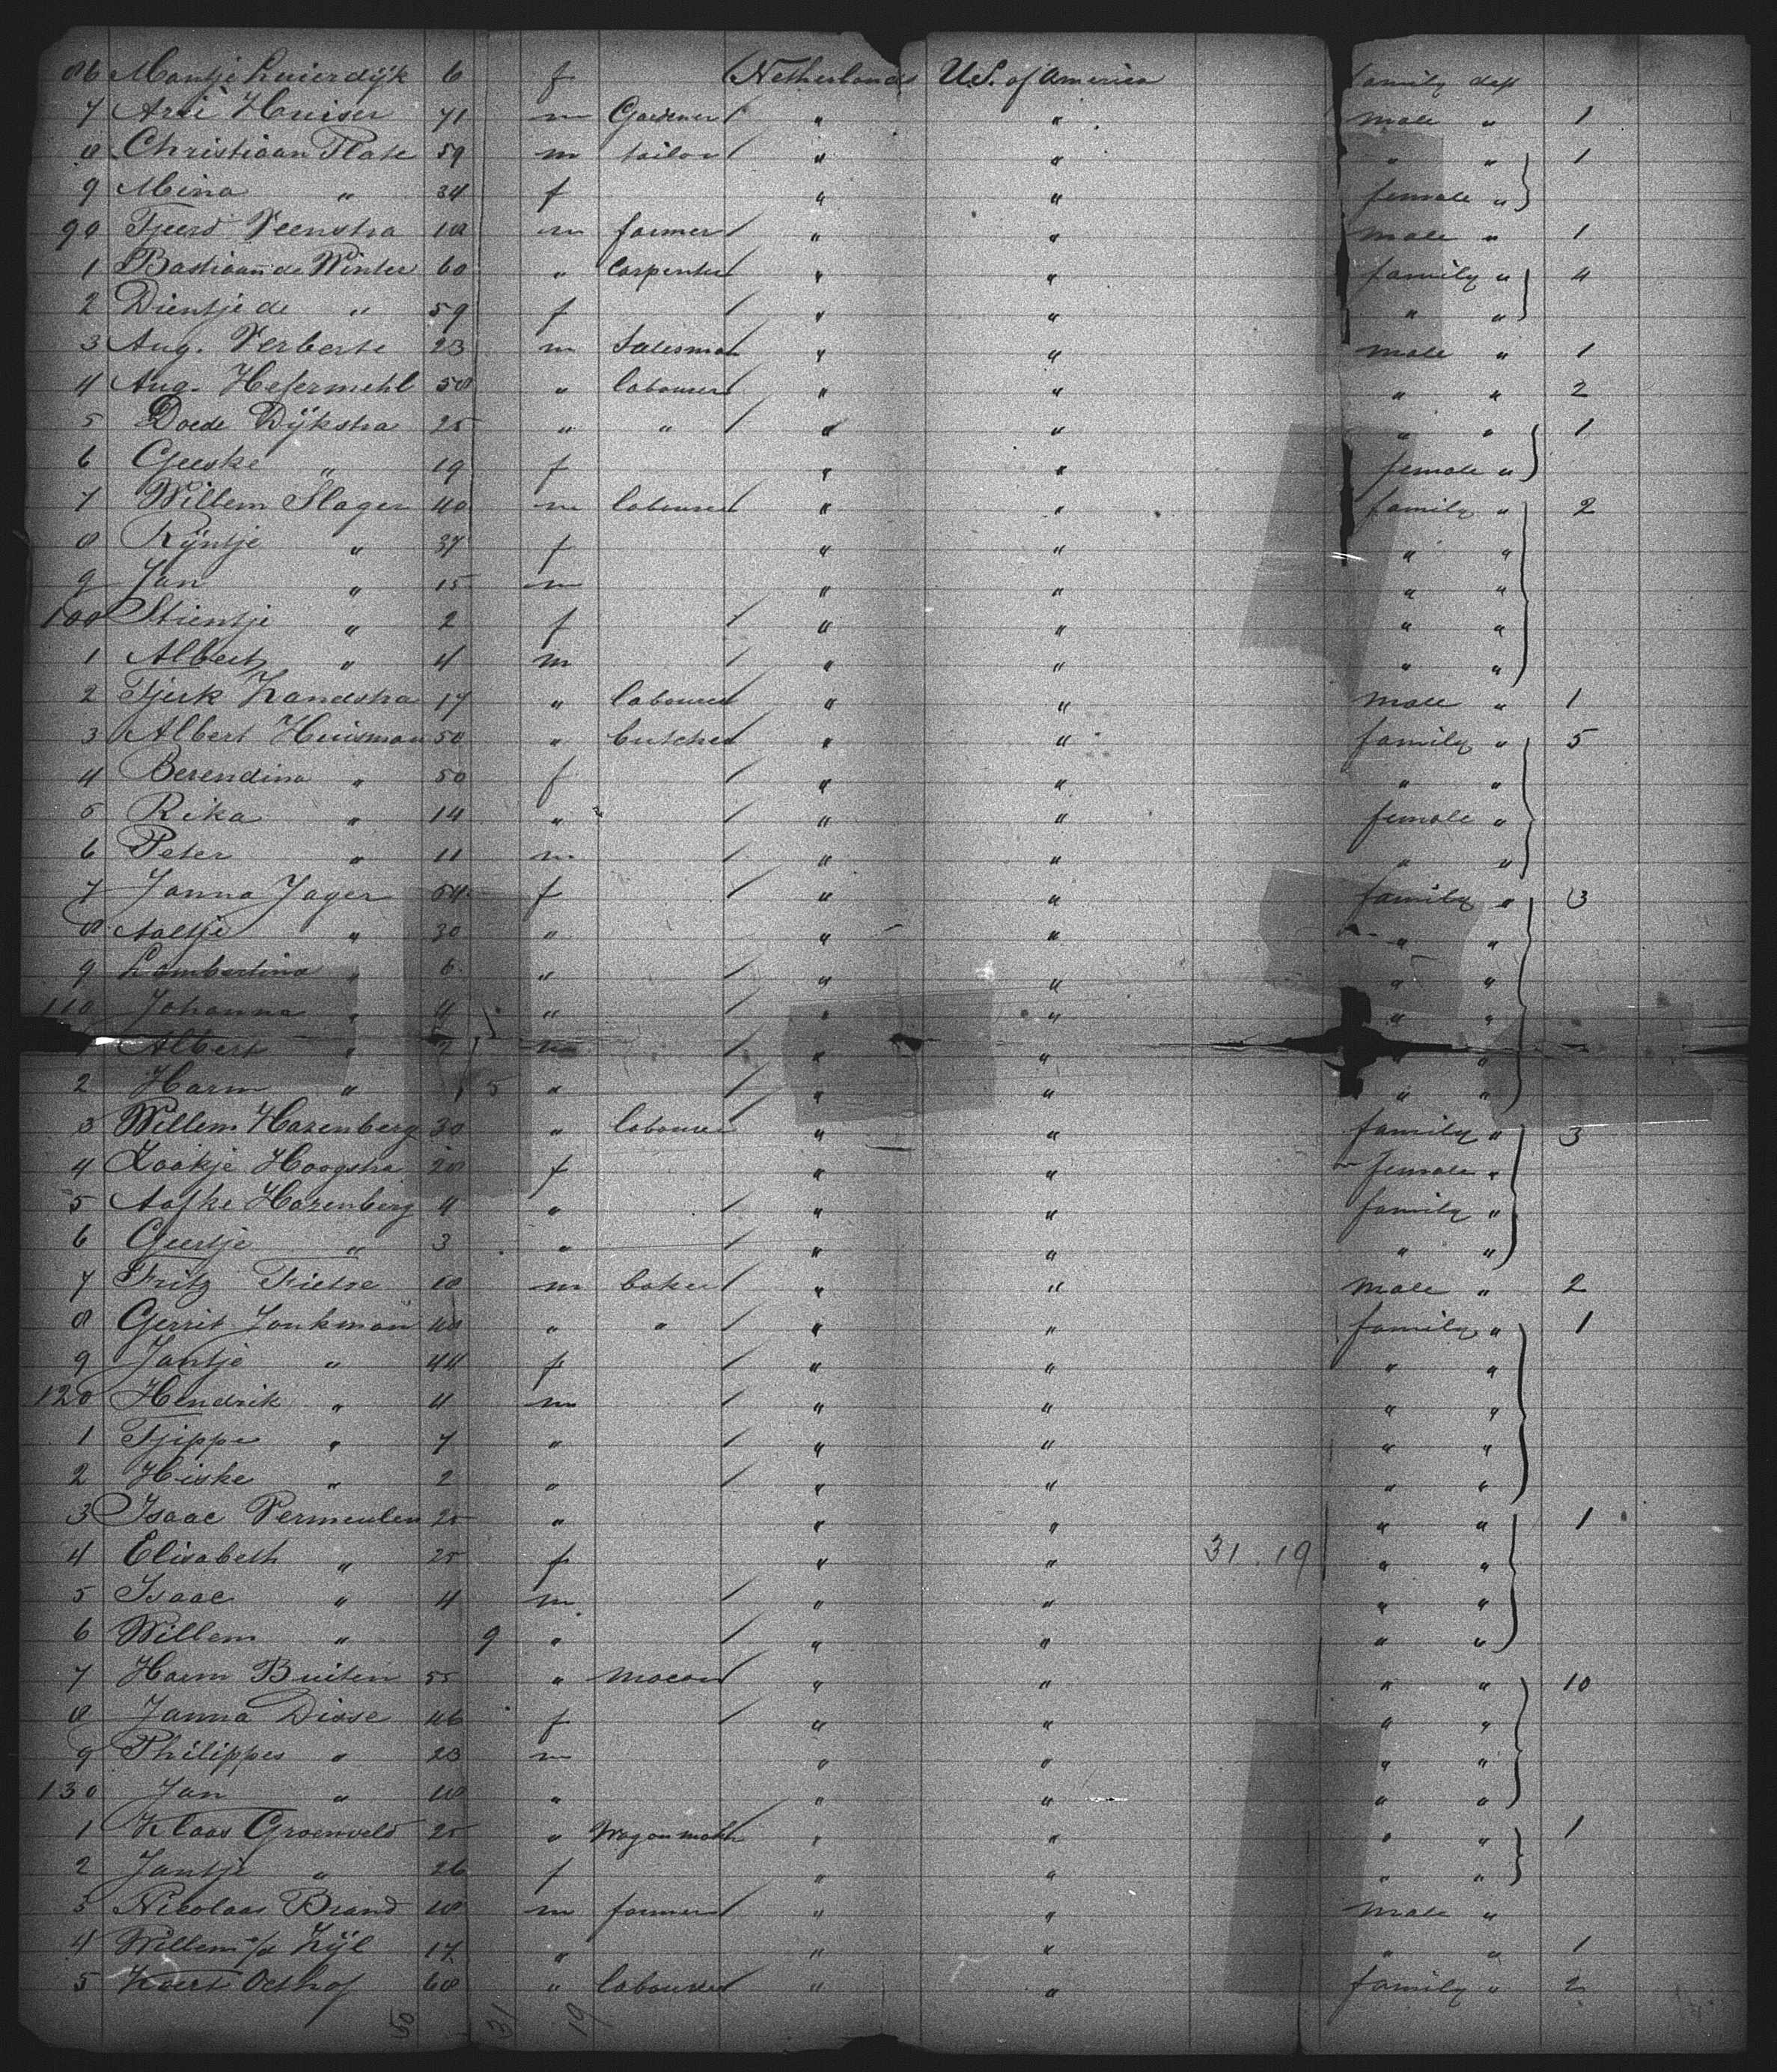 86 Mantje Luierdijk 6 f Netherlands U.S. of America family deß
7 Arie Huiser 71 m Gardener / " " male " 1
8 Christiaan Plate 59 m tailor / " " " " 1
9 Mina " 34 f " " female "
90 Tjeerd Veenstra 18 m farmer / " " male " 1
1 Bastiaan de Winter 60 " Carpenter / " " family " 4
2 Dientje de " 59 f / " " " "
3 Aug. Verberte 23 m Salesman " " male " 1
4 Aug. Hefermehl 58 " labourer / " " " " 2
5 Doede Dijkstra 25 " " / " " " " 1
6 Geeske " 19 f " " female "
7 Willem Slager 40 m labourer " " family " 2
8 Rijntje " 37 f " " " "
9 Jan " 15 m " " " "
100 Stientje " 2 f / " " " "
1 Albert " 4 m / " " " "
2 Tjerk Zandstra 17 " labourer " " male " 1
3 Albert Huisman 50 " butcher " " family " 5
4 Berendina " 50 f / " " " "
5 Rika " 14 " / " " female "
6 Peter " 11 m / " " " "
7 Janna Jager 54 f / " " family " 3
8 Aaltje " 30 " " " " "
9 Lambertina " 6 " / " " " "
110 Johanna " 4 " / " " " "
1 Albert " 2 m / " " " "
2 Harm " 5 " / " " " "
3 Willem Hazenberg 30 " labourer " " family " 3
4 Zaakje Hoogstra 28 f " " female "
5 Aafke Hazenberg 4 " / " " family "
6 Geertje " 3 " / " " " "
7 Fritz Tietse 18 m baker / " " male " 2
8 Gerrit Jonkman 48 " " / " " family " 1
9 Jantje " 44 f / " " " "
120 Hendrik " 11 m / " " " "
1 Tjippe " 7 " / " " " "
2 Hiske " 2 " / " " " "
3 Isaac Vermeulen 25 " " " " " 1
4 Elisabeth " 25 f " " 31.19 " "
5 Isaac " 4 m / " " " "
6 Willem " 9 " / " " " "
7 Harm Buiten 55 " macon / " " " " 10
8 Janna Disse 46 f / " " " "
9 Philippes " 23 m " " " "
130 Jan " 18 " " " " "
1 Klaas Groenveld 25 " Wagonmakr " " " " 1
2 Jantje " 26 f " " " "
3 Nicolaas Brand 18 m farmer / " " male "
4 Willem v/d Zijl 17 " " " " " 1
5 Osthof 68 " labourer " " family " 2
50 31 19